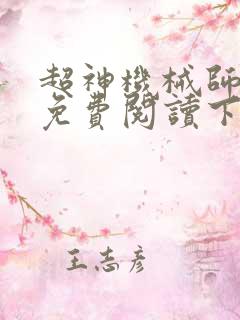 超神機械師
免費閱讀下
王志彦